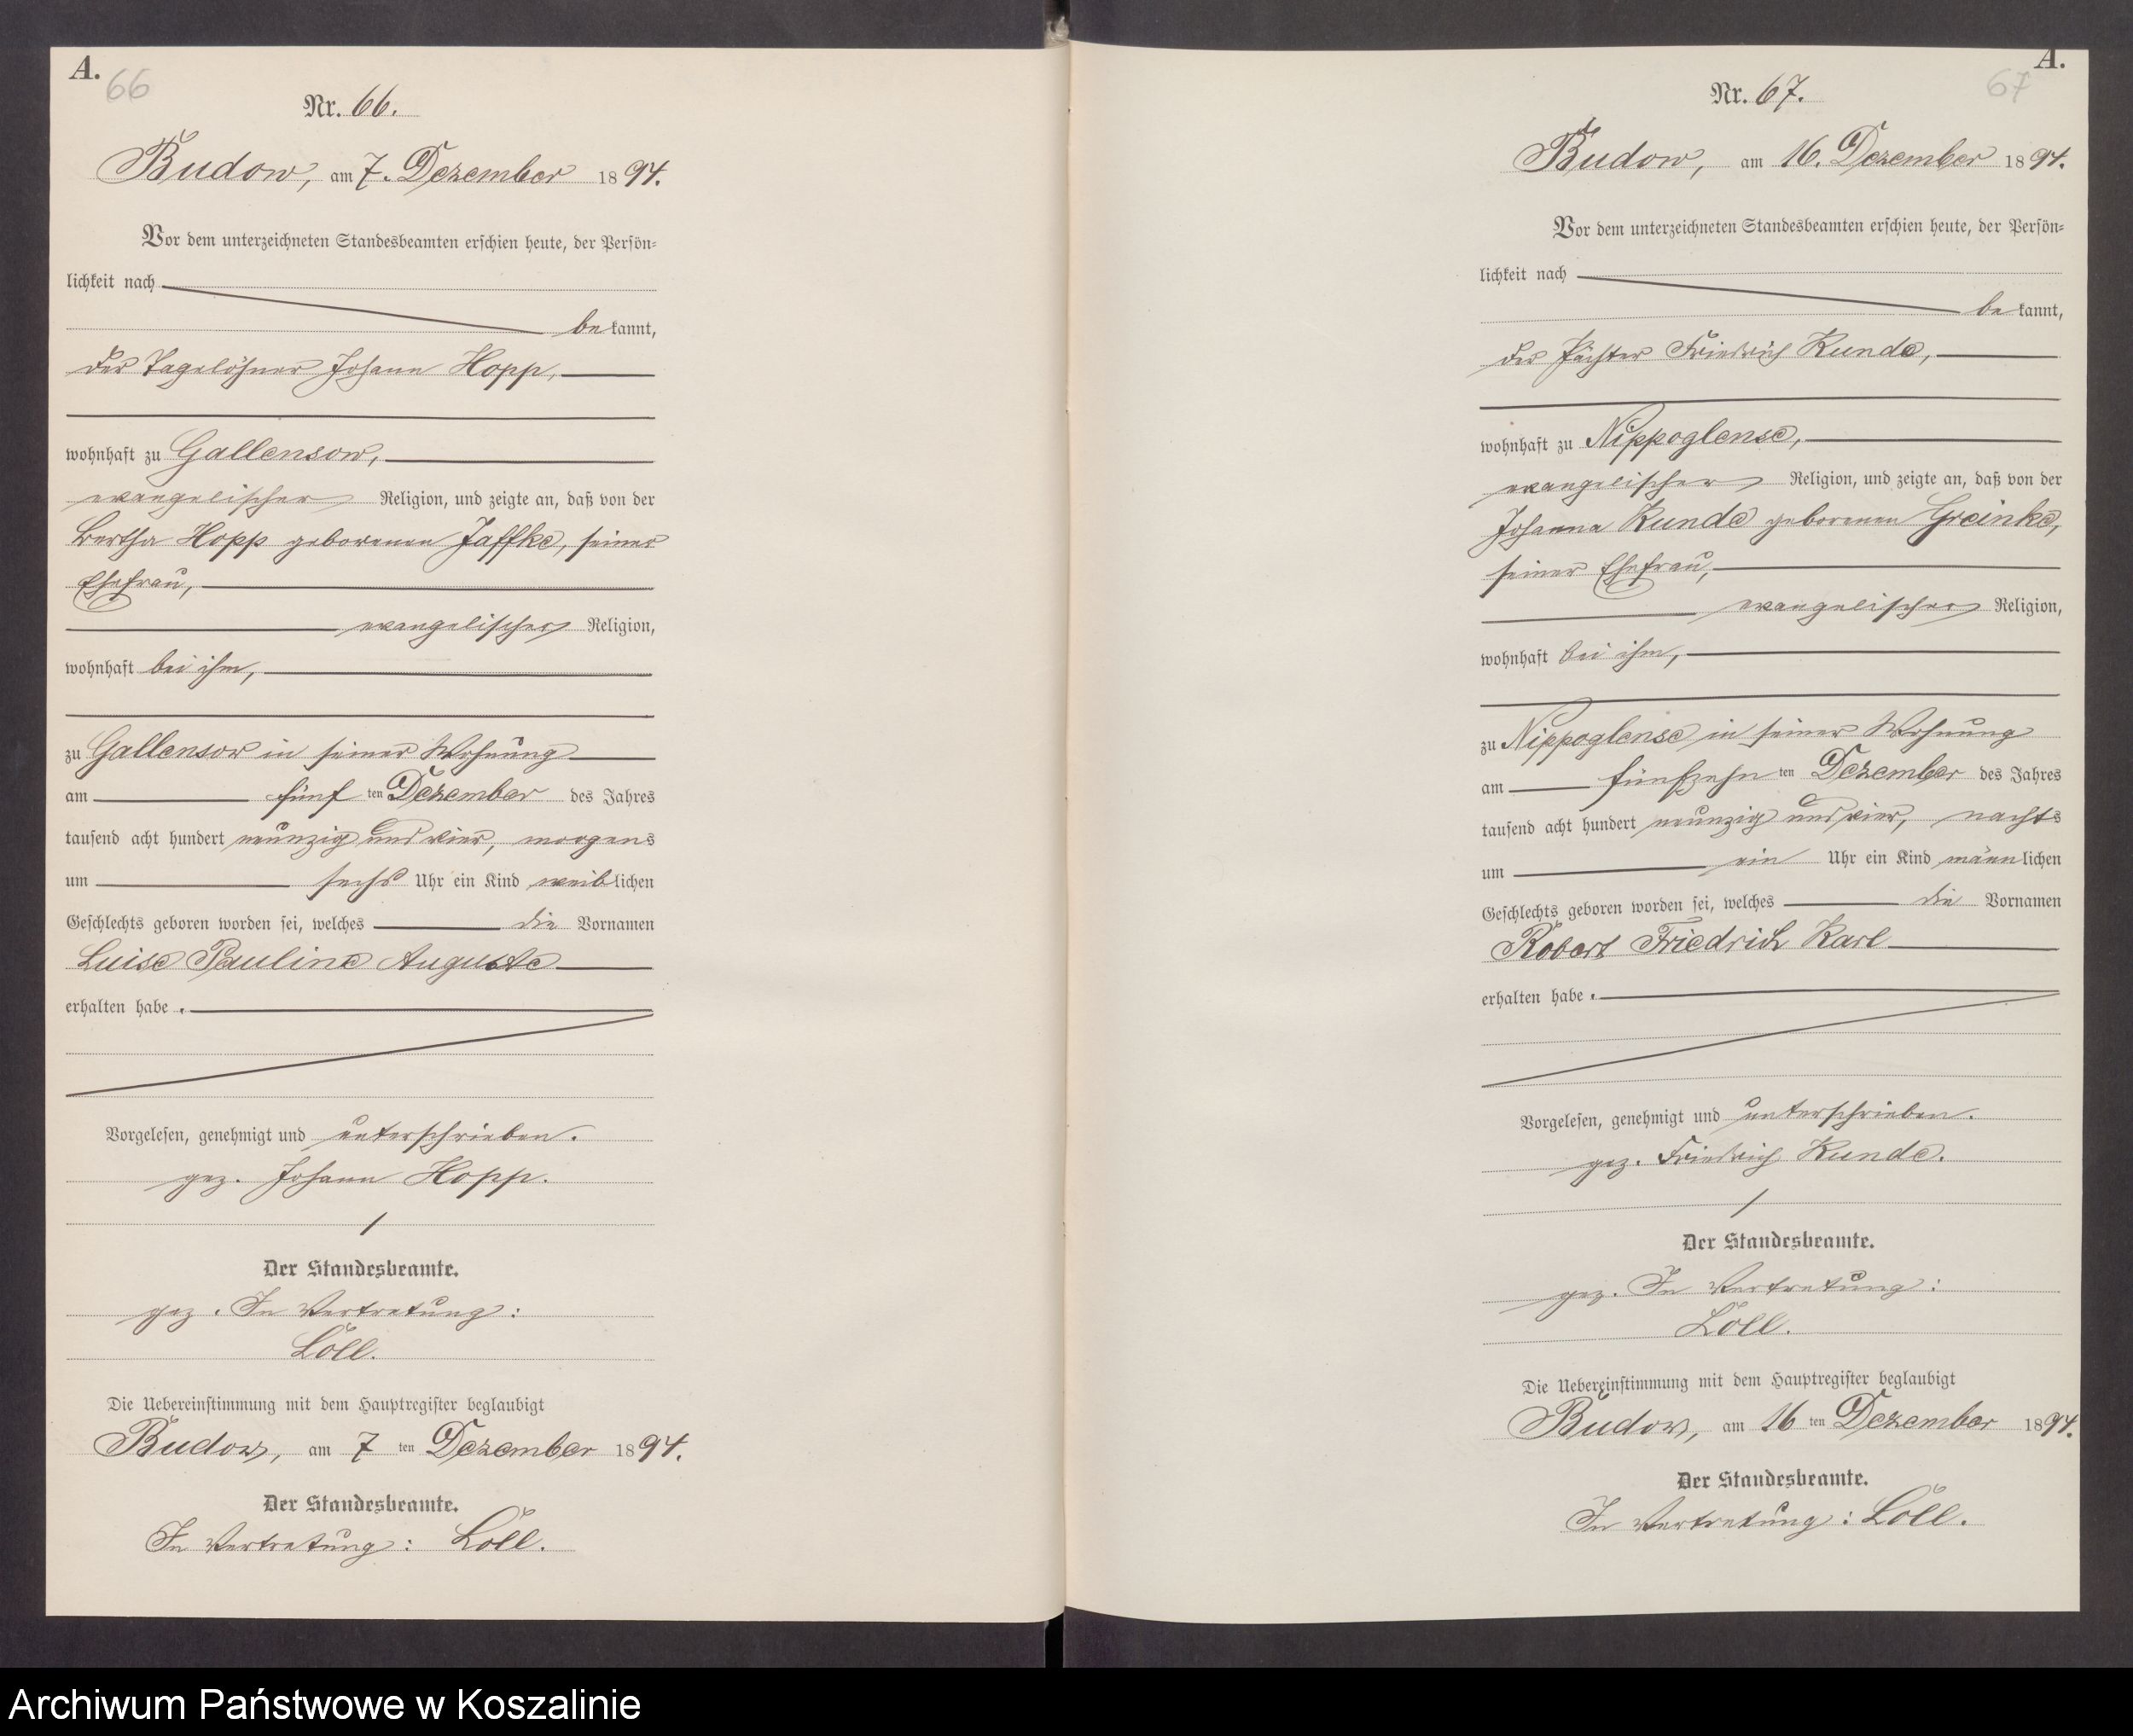 A.
66
Nr. 66.
Budow, am 7. Dezember 1894.
Vor dem unterzeichneten Standesbeamten erschien heute, der Persön-
lichkeit nach
bekannt,
der Tagelöhner Johann Hopp,
wohnhaft zu Gallensow,
evangelischer Religion, und zeigte an, daß von der
Bertha Hopp geborenen Jaffke, seiner
Ehefrau,
evangelischer Religion,
wohnhaft bei ihm,
zu Gallensow in seiner Wohnung
am fünf ten Dezember des Jahres
tausend acht hundert neunzig und vier, morgens
um sechs Uhr ein Kind weiblichen
Geschlechts geboren worden sei, welches die Vornamen
Luise Pauline Auguste
erhalten habe.
Vorgelesen, genehmigt und unterschrieben.
gez. Johann Hopp.
Der Standesbeamte.
gez. In Vertretung:
Löll.
Die Uebereinstimmung mit dem Hauptregister beglaubigt
Budow, am 7 ten Dezember 1894.
Der Standesbeamte.
In Vertretung: Löll.
A.
67
Nr. 67.
Budow, am 16. Dezember 1894.
Vor dem unterzeichneten Standesbeamten erschien heute, der Persön-
lichkeit nach
bekannt,
der Pächter Friedrich Kunde,
wohnhaft zu Nippoglense,
evangelischer Religion, und zeigte an, daß von der
Johanna Kunde geborenen Greinke,
seiner Ehefrau,
evangelischer Religion,
wohnhaft bei ihm,
zu Nippoglense in seiner Wohnung
am fünfzehn ten Dezember des Jahres
tausend acht hundert neunzig und vier, nachts
um ein Uhr ein Kind männlichen
Geschlechts geboren worden sei, welches die Vornamen
Robert Friedrich Karl
erhalten habe.
Vorgelesen, genehmigt und unterschrieben.
gez. Friedrich Kunde.
Der Standesbeamte.
gez. In Vertretung:
Löll.
Die Uebereinstimmung mit dem Hauptregister beglaubigt
Budow, am 16 ten Dezember 1894.
Der Standesbeamte.
In Vertretung: Löll.
Archiwum Państwowe w Koszalinie